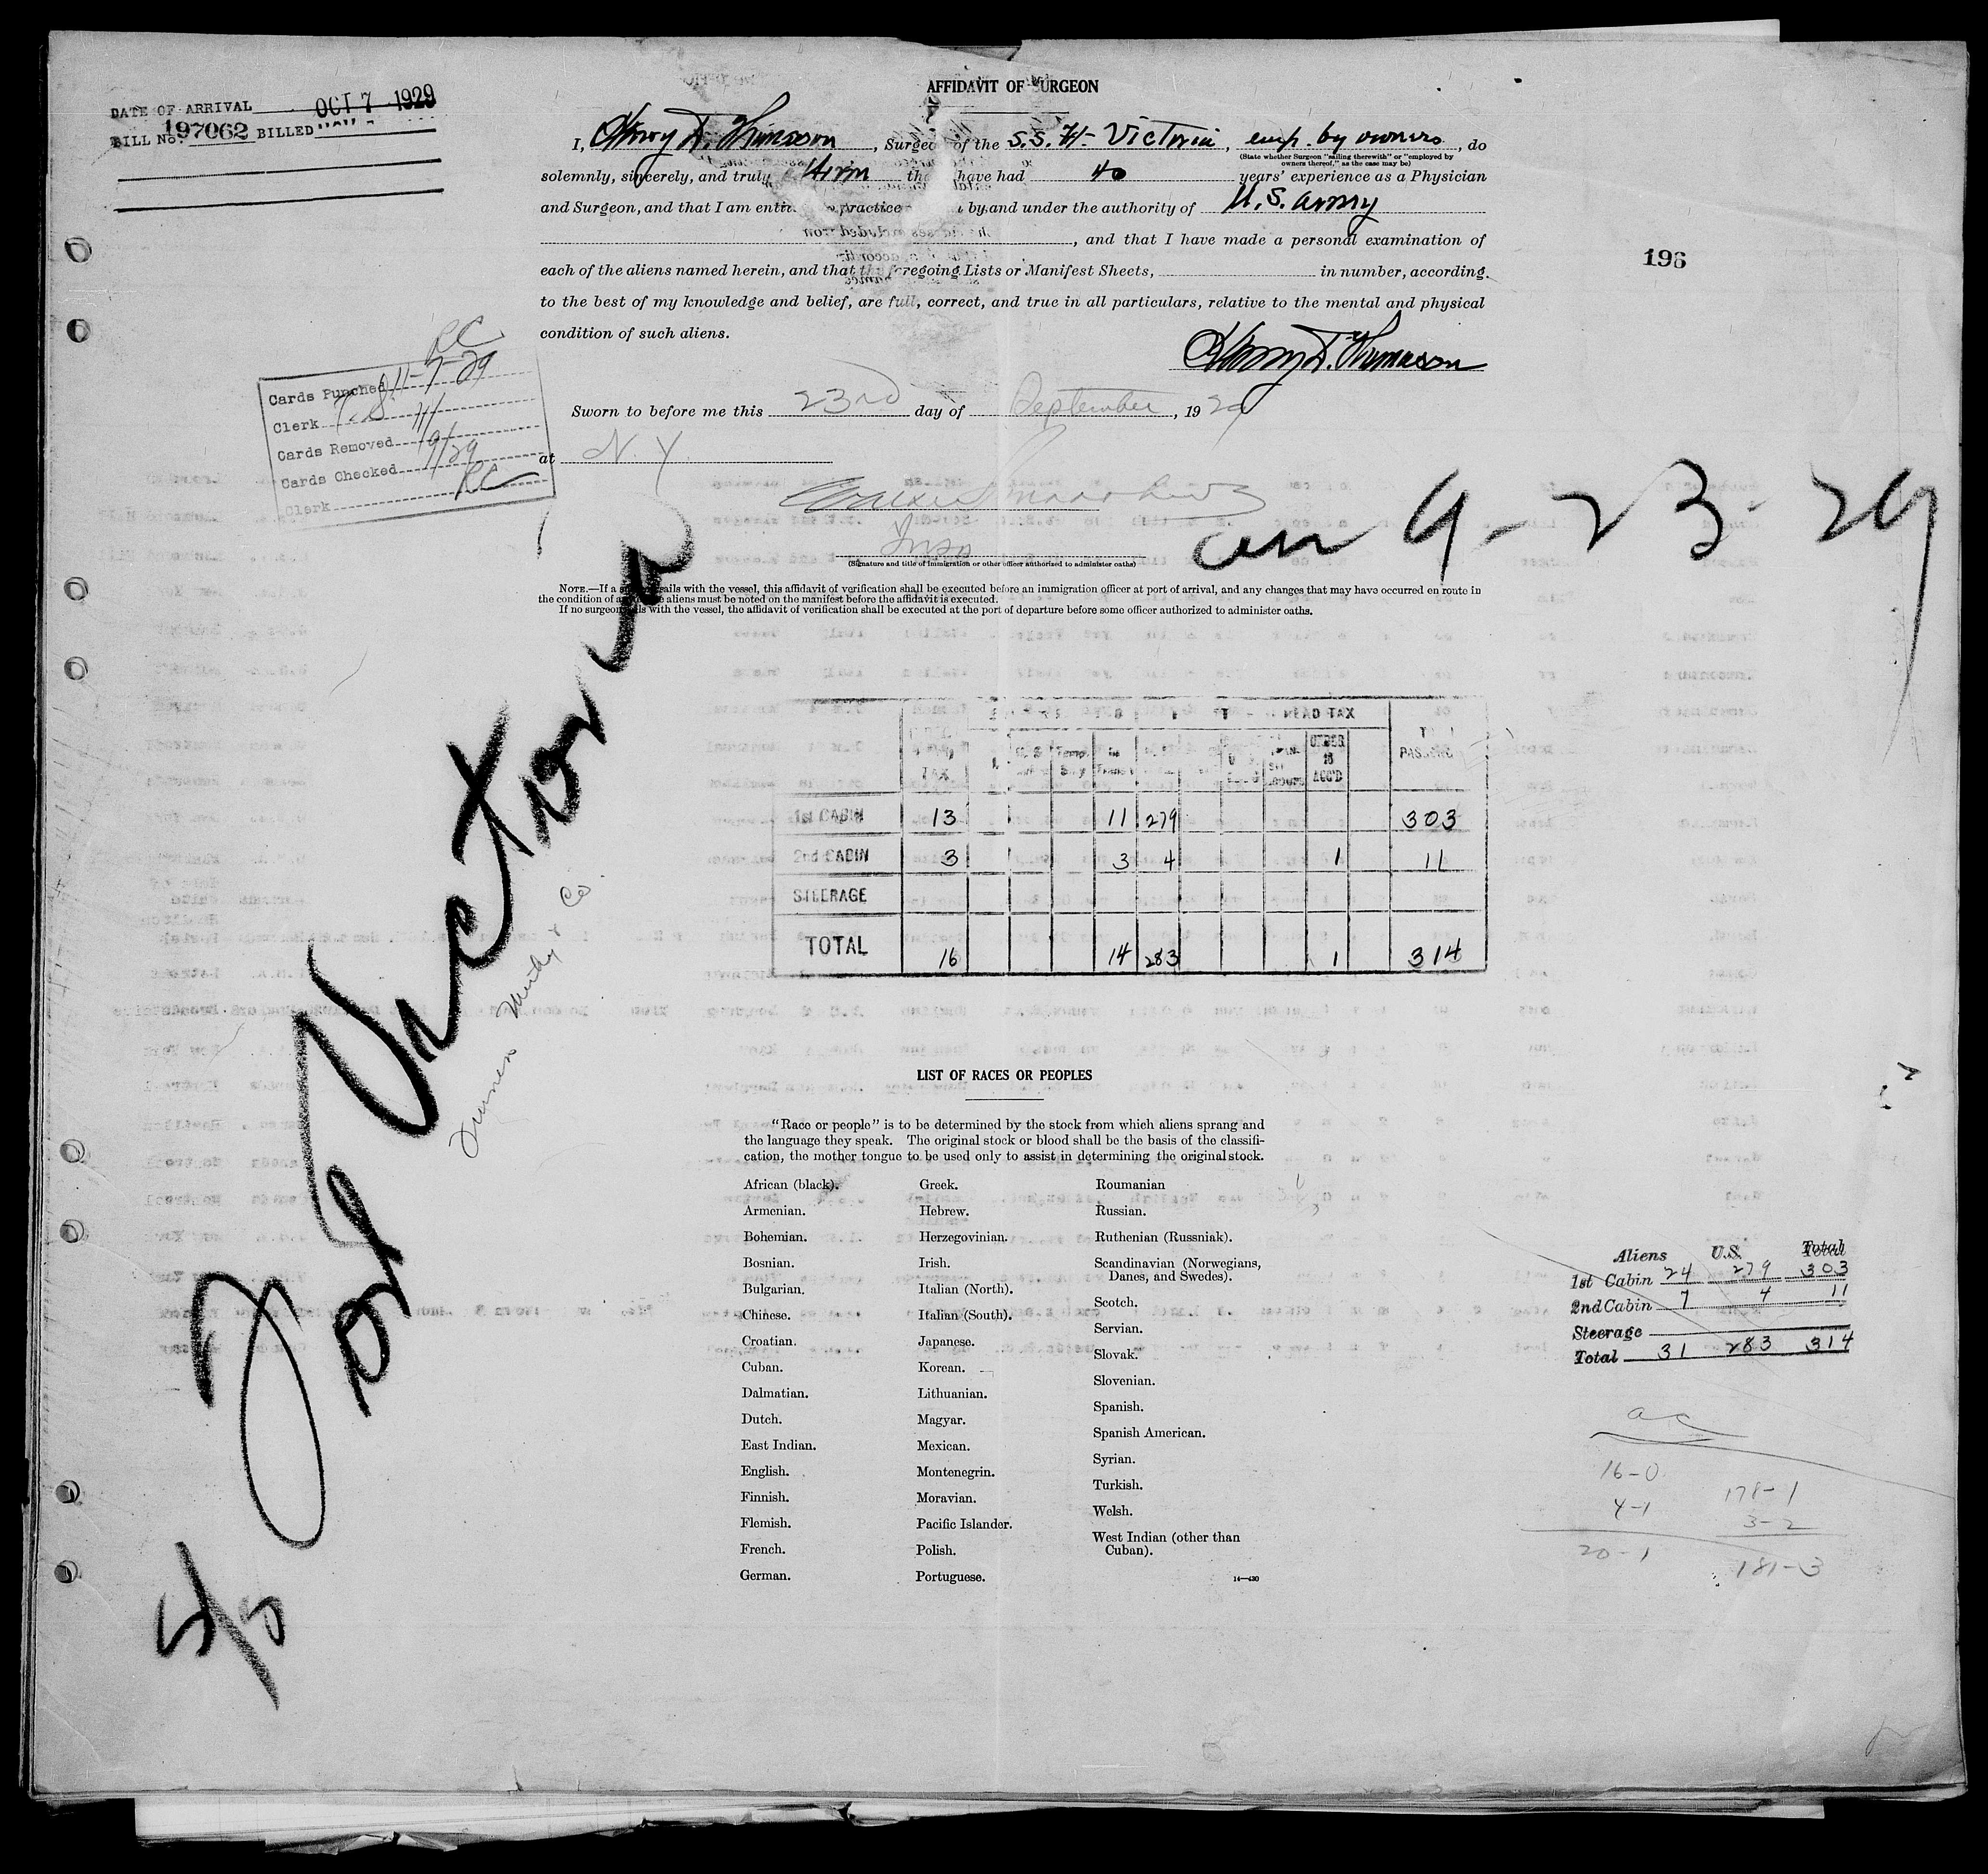 DATE OF ARRIVAL OCT 7 1929
BILL No. 197062 BILLED
AFFIDAVIT OF SURGEON
I, Henry D. Thomason, Surgeon of the S.S. Ft. Victoria, emp. by owners, do
(State whether Surgeon "sailing therewith" or "employed by
owners thereof," as the case may be)
solemnly, sincerely, and truly have had 40 years' experience as a Physician
and Surgeon, and that I am practice by and under the authority of U.S. Army
, and that I have made a personal examination of
each of the aliens named herein, and that the foregoing Lists or Manifest Sheets, in number, according
to the best of my knowledge and belief, are full, correct, and true in all particulars, relative to the mental and physical
condition of such aliens.
Henry D. Thomason
196
Cards Punched 11-7-29
Clerk
Cards Removed
Cards Checked
Clerk
Sworn to before me this 23rd day of September, 1929
at N. Y.
(Signature and title of immigration or other officer authorized to administer oaths)
9-23-29
NOTE.—If a sails with the vessel, this affidavit of verification shall be executed before an immigration officer at port of arrival, and any changes that may have occurred en route in
the condition of aliens must be noted on the manifest before the affidavit is executed.
If no surgeon sails with the vessel, the affidavit of verification shall be executed at the port of departure before some officer authorized to administer oaths.
S/S Fort Victoria
Furness Withy & Co
HEAD TAX
TAX Temp. Stay In Transit UNDER 16 ACC'D PASSENG
1st CABIN 13 11 279 303
2nd CABIN 3 3 4 1 11
STEERAGE
TOTAL 16 14 283 1 314
LIST OF RACES OR PEOPLES
"Race or people" is to be determined by the stock from which aliens sprang and
the language they speak. The original stock or blood shall be the basis of the classifi-
cation, the mother tongue to be used only to assist in determining the original stock.
African (black).
Armenian.
Bohemian.
Bosnian.
Bulgarian.
Chinese.
Croatian.
Cuban.
Dalmatian.
Dutch.
East Indian.
English.
Finnish.
Flemish.
French.
German.
Greek.
Hebrew.
Herzegovinian.
Irish.
Italian (North).
Italian (South).
Japanese.
Korean.
Lithuanian.
Magyar.
Mexican.
Montenegrin.
Moravian.
Pacific Islander.
Polish.
Portuguese.
Roumanian
Russian.
Ruthenian (Russniak).
Scandinavian (Norwegians,
Danes, and Swedes).
Scotch.
Servian.
Slovak.
Slovenian.
Spanish.
Spanish American.
Syrian.
Turkish.
Welsh.
West Indian (other than
Cuban).
14—430
Aliens U.S. Total
1st Cabin 24 279 303
2nd Cabin 7 4 11
Steerage
Total 31 283 314
16-0 178-1
4-1 3-2
20-1 181-3